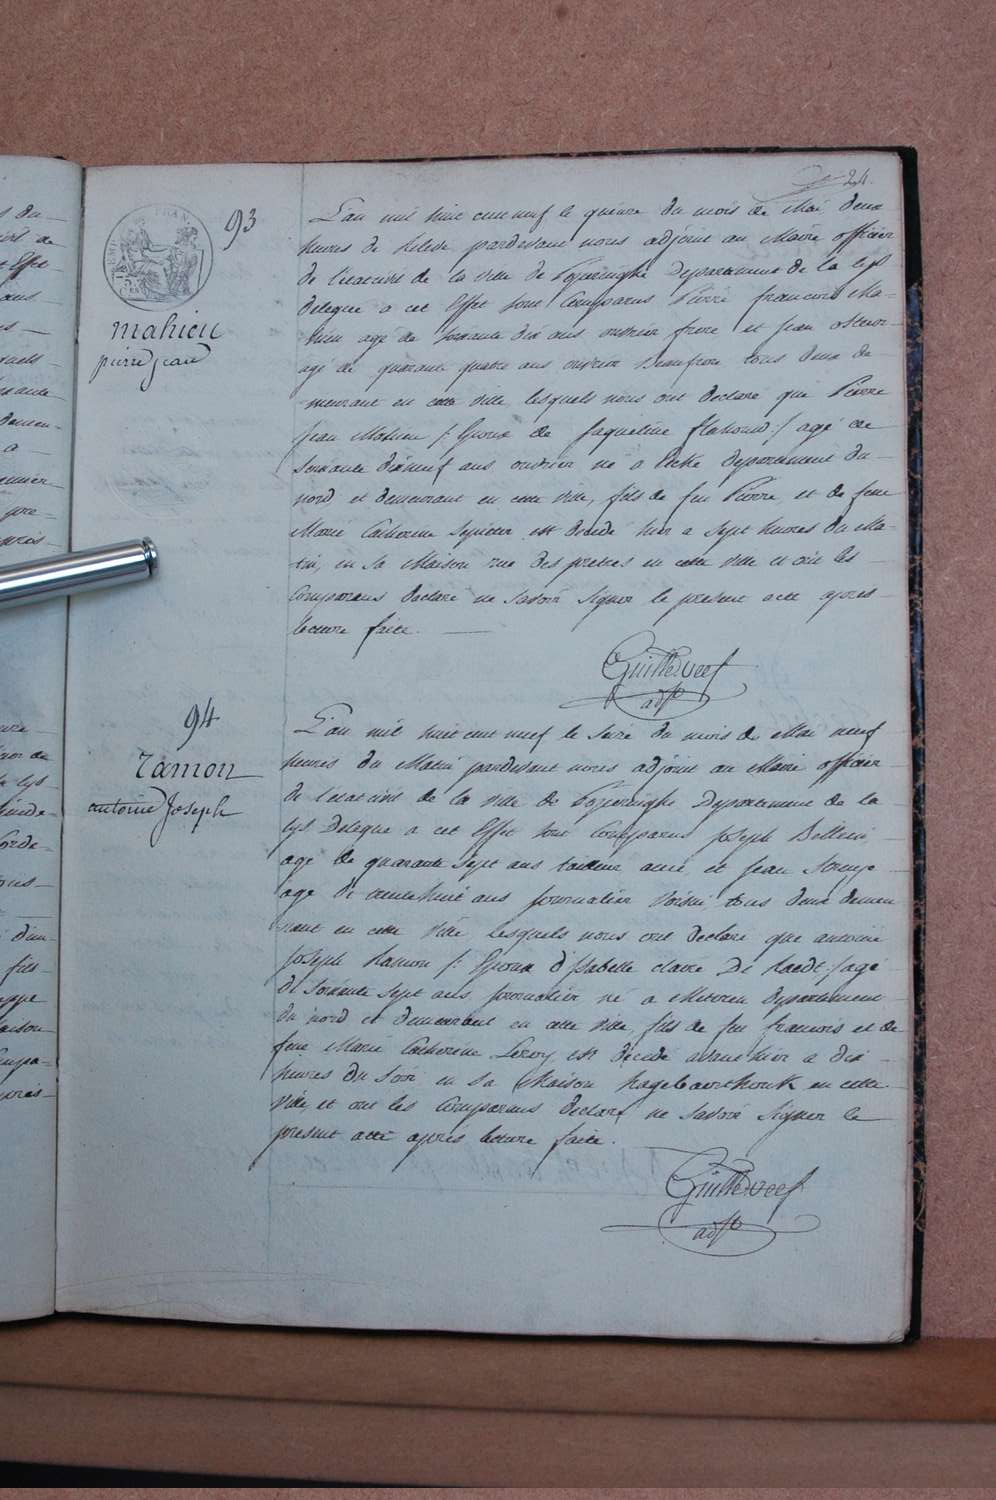 24.
93
mahieu
pierre jean
L'an mil huit cent neuf le quinze du mois de Mai deux
heures de relevée pardevant nous adjoint au Maire officier
de l'etat civil de la ville de Poperinghe Departement de la lys
delegué a cet Effet sont Comparus Pierre francois Ma-
hieu agé de soixante dix ans ouvrier frere et jean
agé de quarante quatre ans ouvrier Beaufrere tous deux de
meurant en cette ville lesquels nous ont declaré que Pierre
jean Mahieu /: Epoux de jaqueline :/ agé de
soixante dixneuf ans ouvrier né a Departement du
nord, et demeurant en cette ville, fils de feu Pierre et de feue
Marie Catherine est decédé hier a sept heures du Ma-
tin, en sa Maison rue des pretres en cette ville et ont les
Comparans declaré ne savoir signer le present acte après
lecture faite.
adjt
94
Ramon
antoine Joseph
L'an mil huit cent neuf le seize du mois de Mai neuf
heures du Matin pardevant nous adjoint au Maire officier
de l'etat civil de la ville de Poperinghe Departement de la
lys delegué a cet Effet sont Comparus Joseph
agé de quarante sept ans ami, et jean
agé de trente huit ans journalier voisin tous deux demeu
rant en cette ville lesquels nous ont declaré que antoine
Joseph Ramon /: Epoux d'Isabelle claire De Raedt :/ agé
de soixante sept ans journalier né a Meteren Departement
du nord et demeurant en cette ville, fils de feu francois et de
feue Marie Catherine Leroy, est décédé avant hier a dix
heures du soir en sa Maison en cette
ville, et ont les Comparans declaré ne savoir signer le
present acte après lecture faite.
adjt